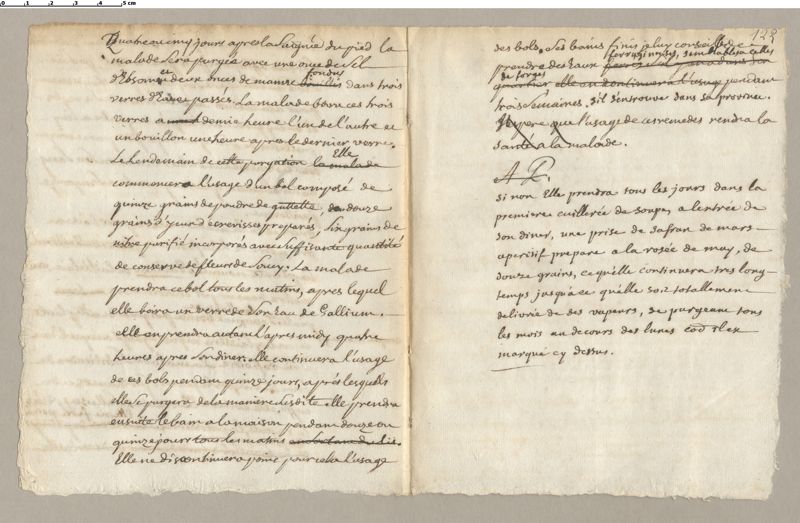 Quatre ou cinq jours apres la Saignée du pied la
malade Sera purgée avec une once de Sel
d'Ebsom et deux onces de manne fondus dans trois
verres d'eau passés. La malade boira ces trois
verres a demie heure l'un de l'autre et
un bouillon une heure apres le dernier verre.
Le lendemain de cette purgation Elle la malade
commencera l'usage d'un bol composé de
quinze grains de poudre de guttette, de douze
grains d'yeux d'ecrevisses preparés, six grains de
nitre purifié incorporés avec suffisante quantité
de conserve de fleurs de Soucy. La malade
prendra ce bol tous les matins, apres lequel
elle boira un verre de Son Eau de Gallium.
elle en prendra autant l'apres midy quatre
heures apres Son diner. elle continuera l'usage
de ces bols pendant quinze jours, après lesquels
elle Se purgera de la maniere Susdite. elle prendra
ensuite le bain a la maison pendant douze ou
quinze jours tous les matins
Elle ne discontinuera point pour cela l'usage
123
des bols. Ses bains finis
ferrugineuses, semblables a celles
prendre des Eaux
de forges
quartier elle en continuera l'usage pendant
trois Semaines. s'il s'en trouve dans sa province.
J'espere que l'usage de ces remedes rendra la
santé a la malade.
A P.
si non Elle prendra tous les jours dans la
premiere cuillerée de soupe, a l'entrée de
son diner, une prise de safran de mars
aperitif preparé a la rosée de may, de
douze grains, ce qu'elle continuera tres long-
temps jusqu'a ce qu'elle soit totallement
delivrée de des vapeurs, se purgeant tous
les mois au decours des lunes coe il est
marqué cy dessus.